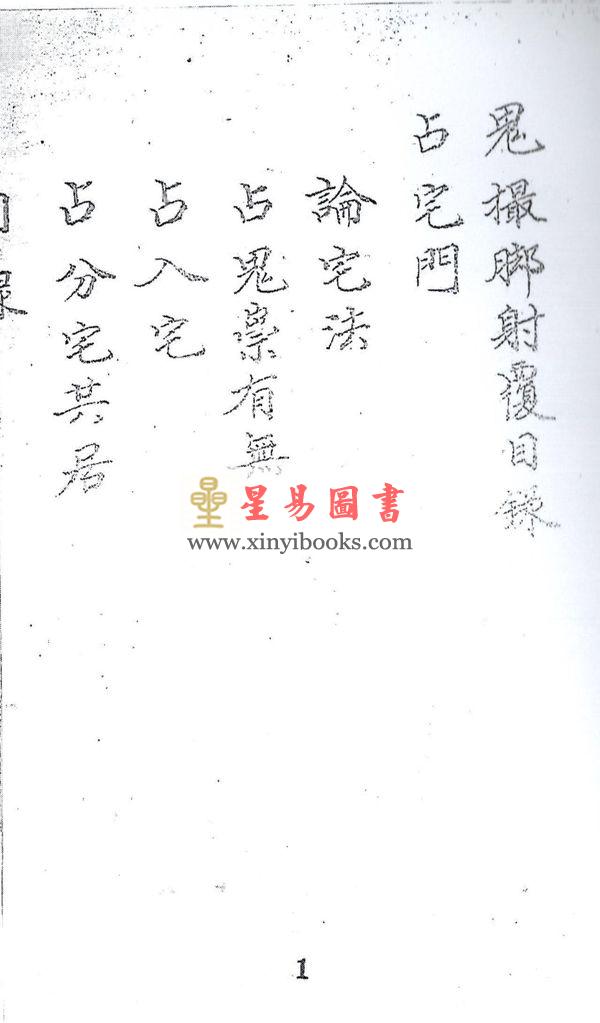 鬼撮脚射覆目錄
占宅門
論宅法
占鬼祟有無
占入宅
占分宅共居
星易圖書
www.xinyibooks.com
1